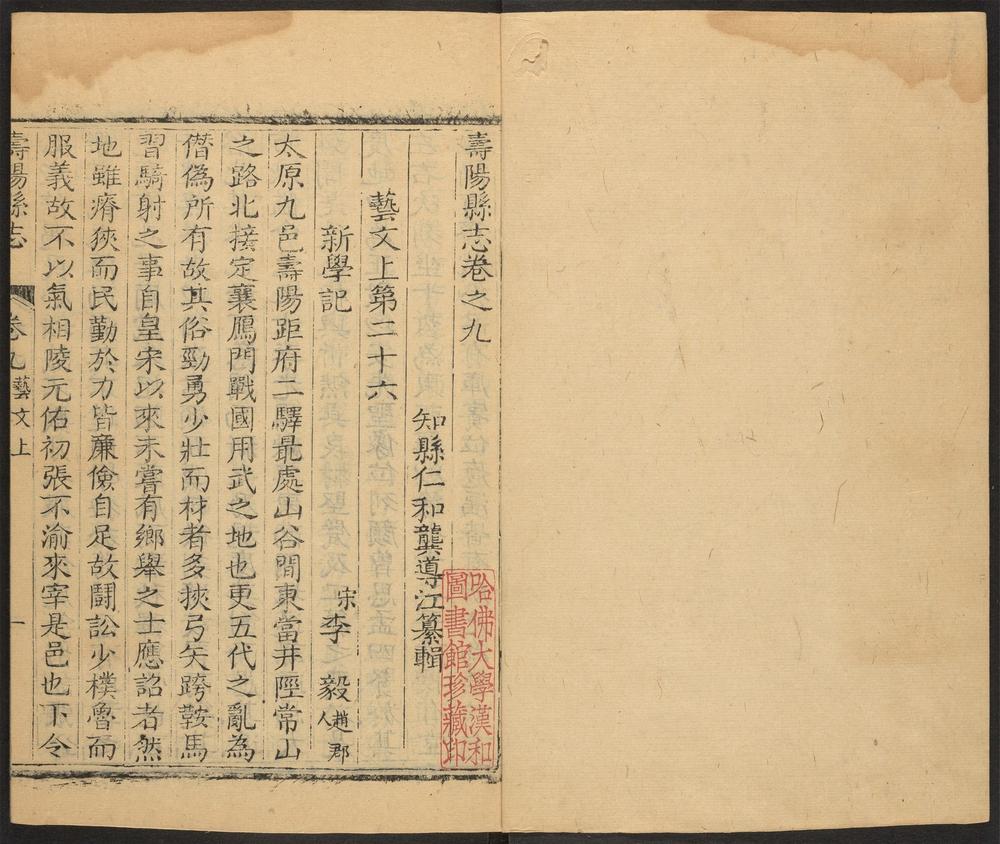 壽陽縣志卷之九
知縣仁和龔導江纂輯
藝文上第二十六
新學記
宋李毅趙郡人
太原九邑壽陽距府二驛最處山谷間東當井陘常山
之路北接定襄鴈門戰國用武之地也更五代之亂為
僭偽所有故其俗勁勇少壯而材者多挾弓矢跨鞍馬
習騎射之事自皇宋以來未嘗有鄉舉之士應詔者然
地雖瘠狹而民勤於力皆廉儉自足故鬪訟少樸魯而
服義故不以氣相陵元佑初張不渝來宰是邑也下令
壽陽縣志
卷九藝文上
一
哈佛大學漢和
圖書館珍藏印